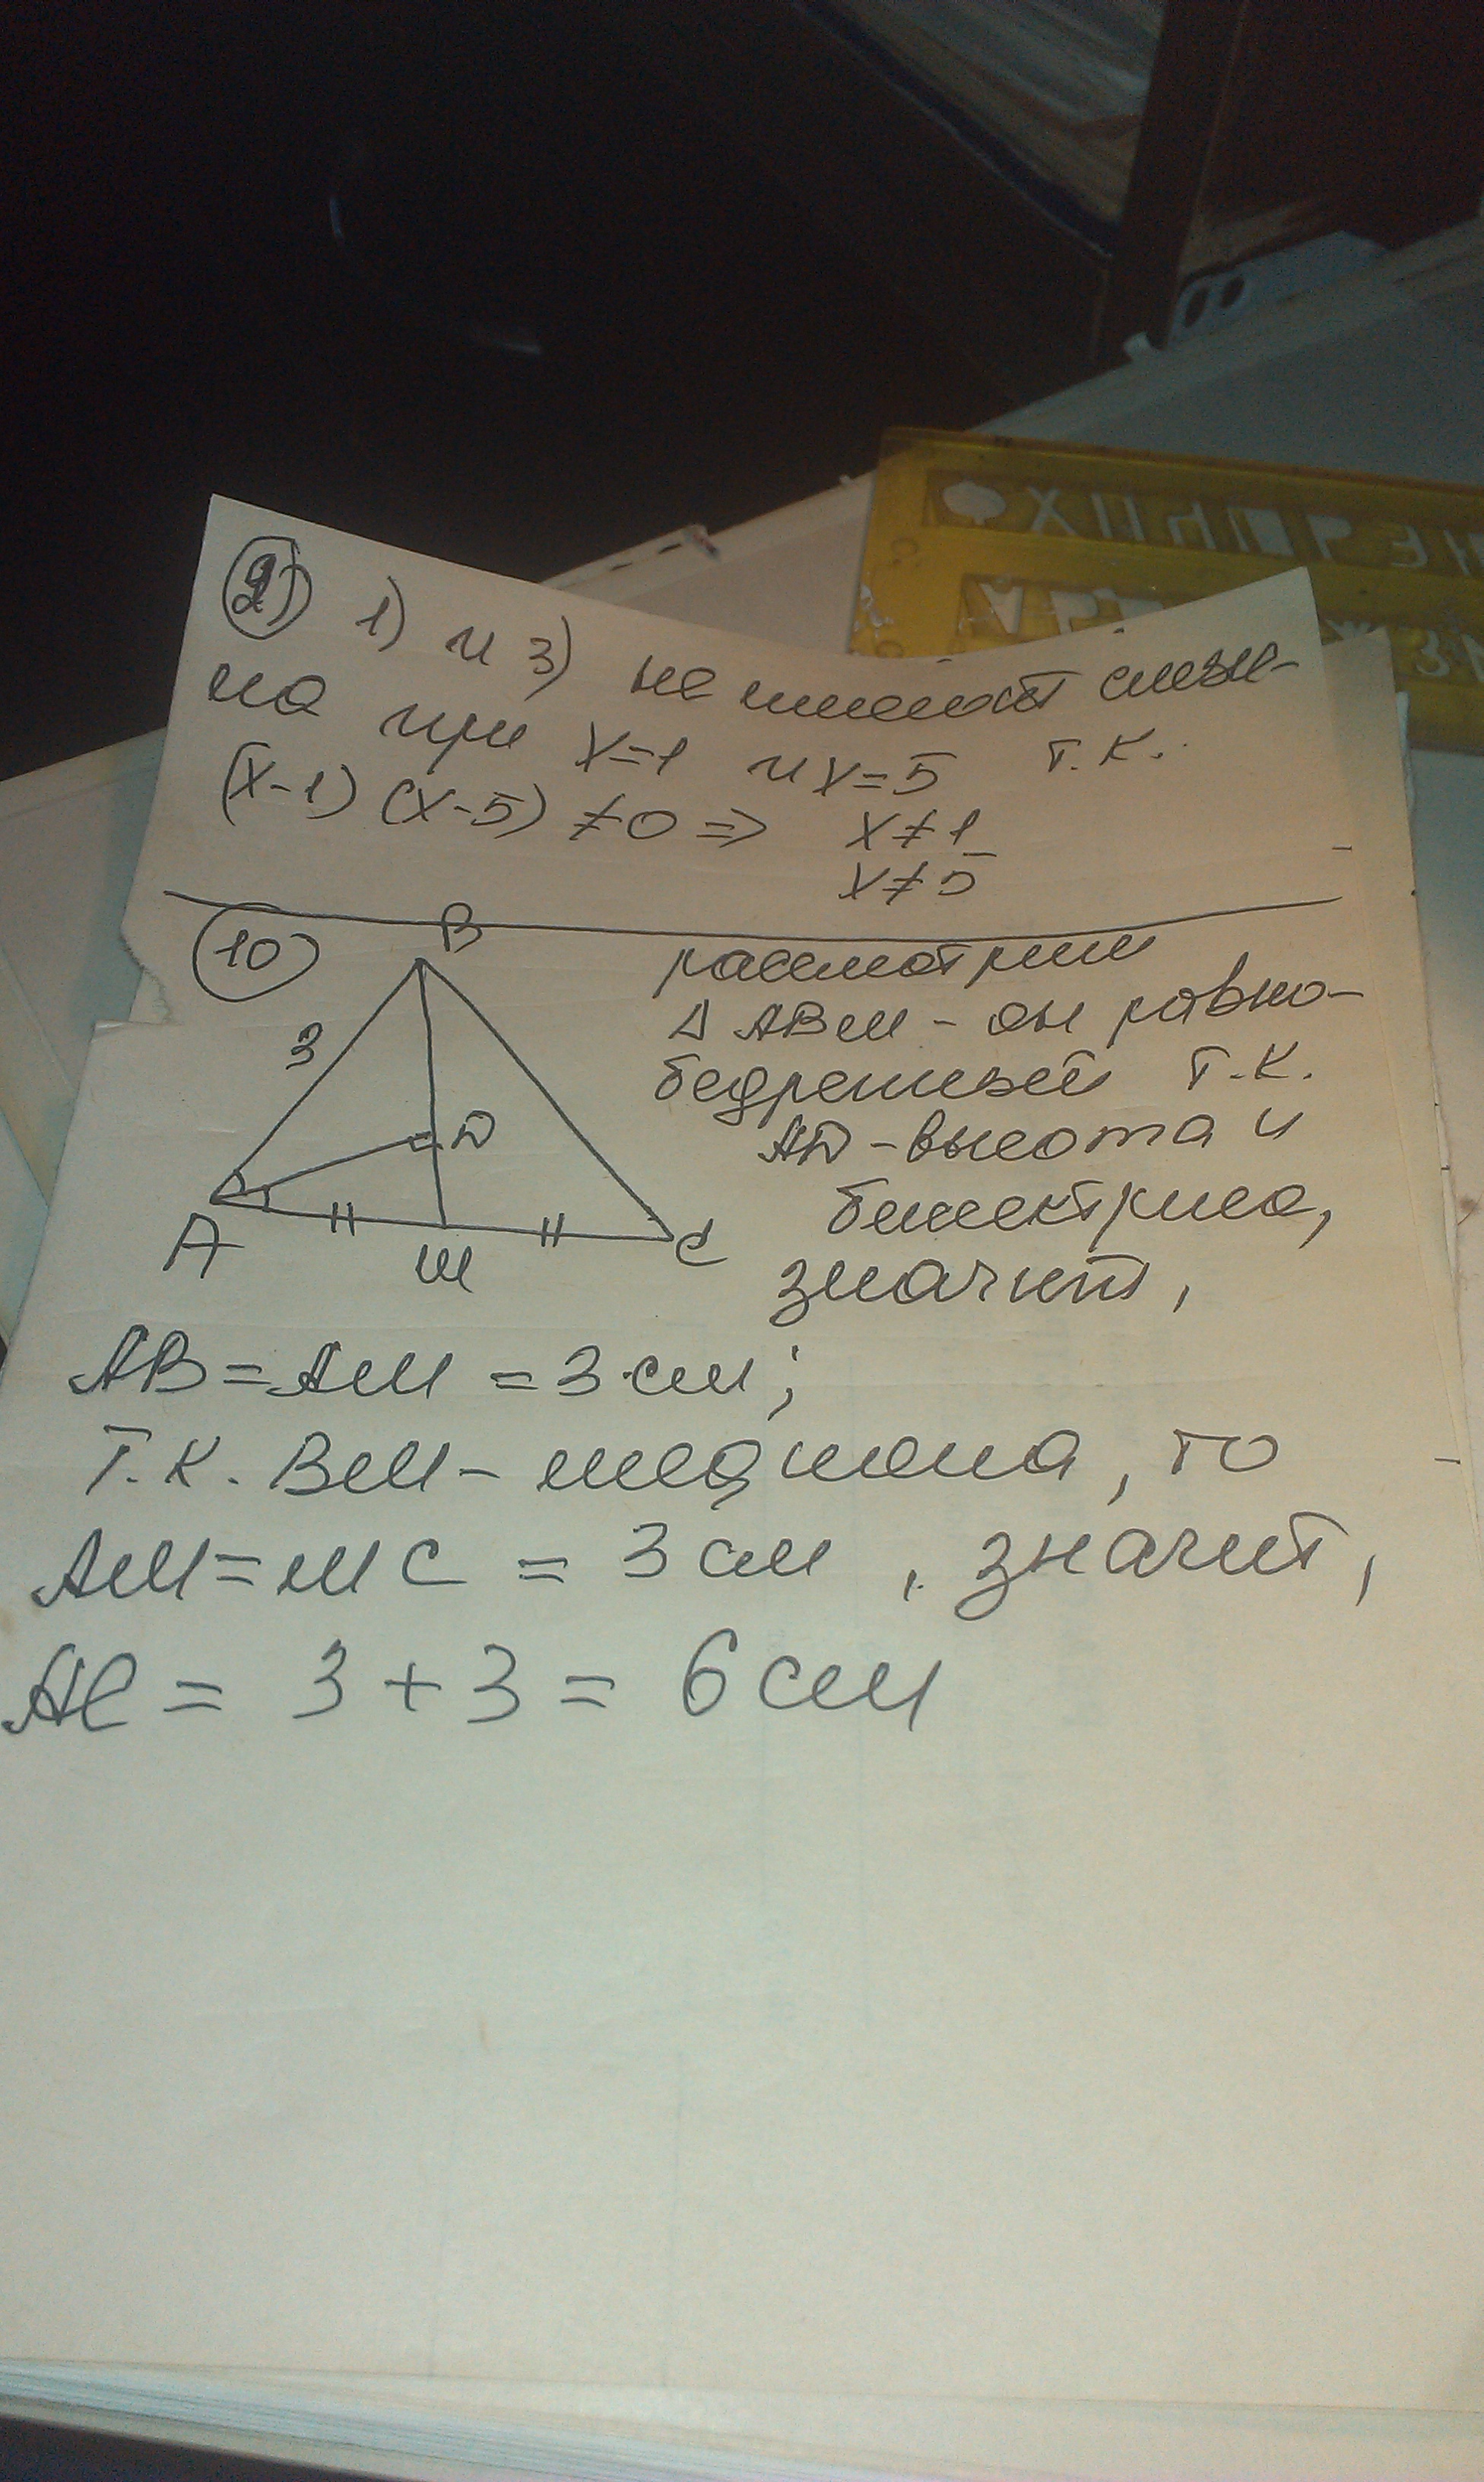 2) 1) и 3) не имеют смыс-
ла при x=1 и x=5 т.к.
(x-1)(x-5)≠0 => x≠1
x≠5
10) B
3
D
A
M
C
рассмотрим
Δ ABM - он равно-
бедренный т.к.
AD - высота и
биссектриса,
значит,
AB=AM=3 см;
т.к. BM - медиана, то
AM=MC=3 см, значит,
AC = 3+3 = 6 см